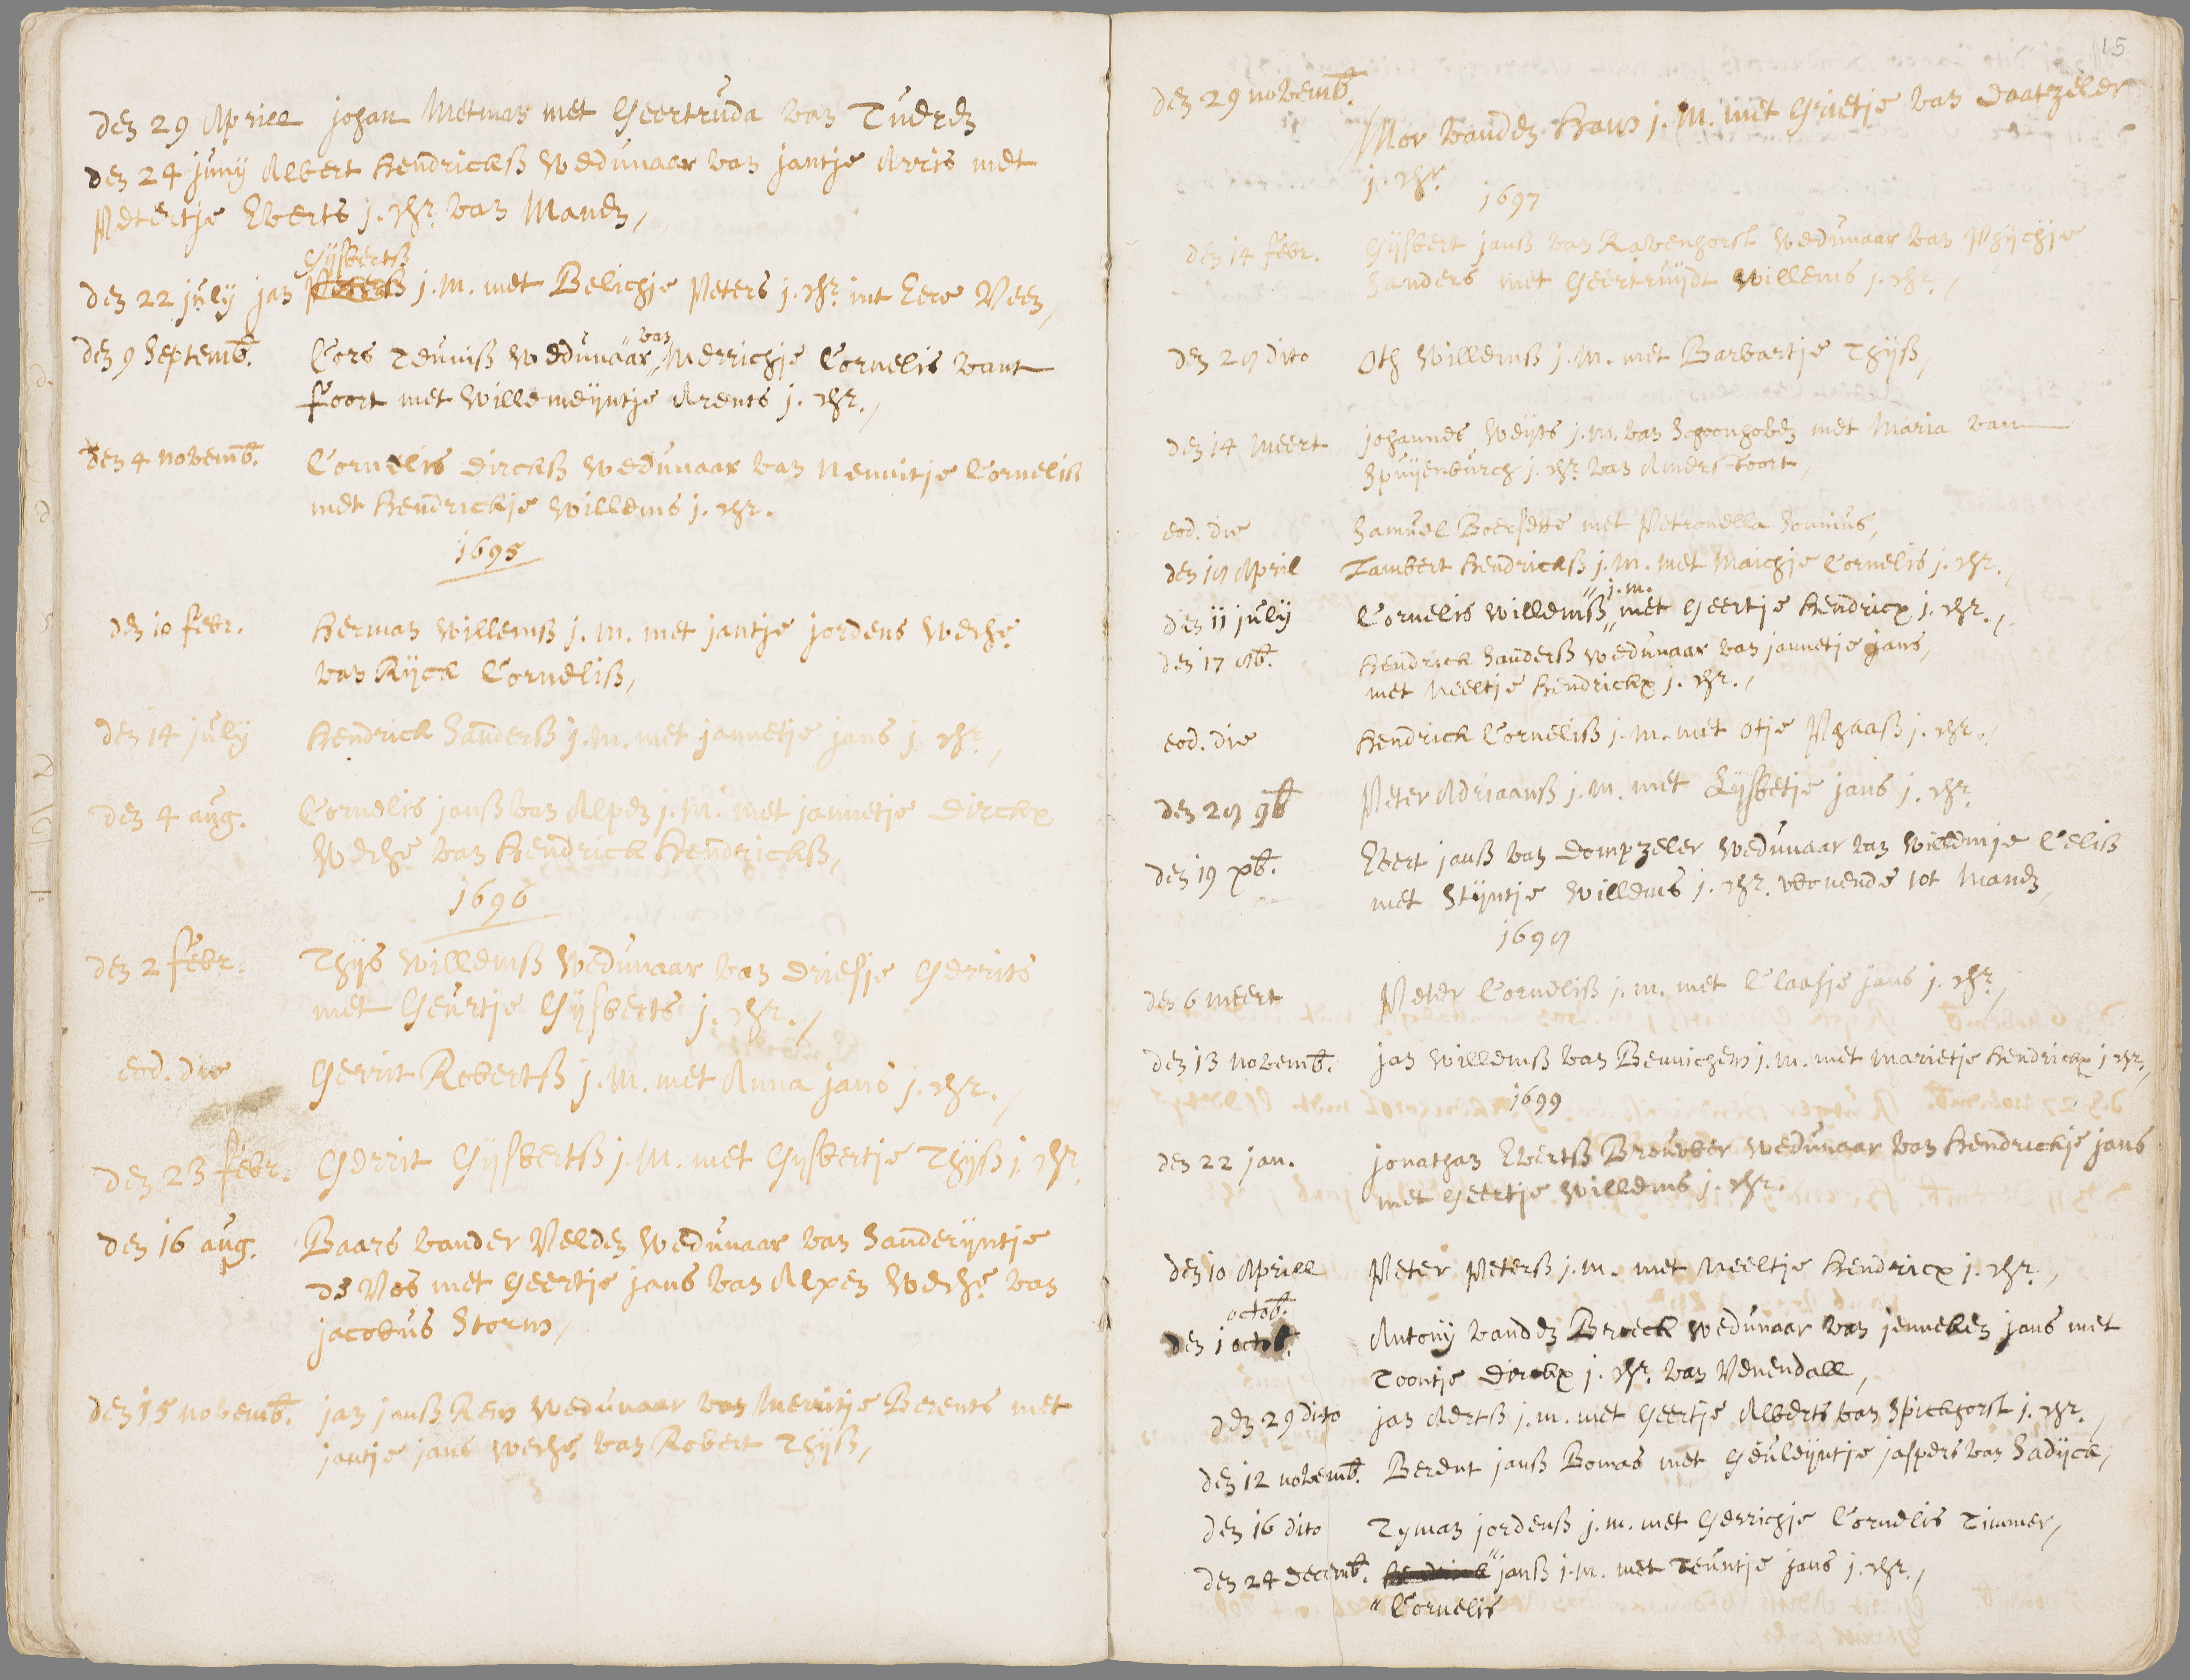 den 29 Aprill johan Metman met Geertruda van Tueren
den 24 junij Albert Hendrickss wedunaar van jantje Arris met
Peteertje Everts j. dhr. van Manen,
Gijsbertss
den 22 julij jan Peterss j. M. met Belichje Peters j. dhr. int Eere Veen,
den 9 Septemb. Cors Teuniss wedunaar van Merrichje Cornelis vant
foort met Willemeijntje Arents j. dhr.,
den 4 novemb. Cornelis Dirckss wedunaar van Nennitje Cornelis
met Hendrickje Willems j. dhr.
1695
den 10 febr. Herman Willemss j. m. met jantje jordens wedhe
van Rijck Corneliss,
den 14 julij Hendrick Sanderss j. m. met jannetje jans j. dhr.,
den 4 aug. Cornelis janss van Alpen j. m. met jannetje Dirckx
wedhe van Hendrick Hendrickss,
1696
den 2 febr. Thijs Willemss wedunaar van Driesje Gerrits
met Geurtje Gijsberts j. dhr.,
eod. die Gerrit Robertss j. M. met Anna jans j. dhr.,
den 23 febr. Gerrit Gijsbertss j. M. met Gijsbertje Thijss j. dhr.
den 16 aug. Baars vander Velden wedunaar van Sanderijntje
de Vos met Geertje jans van Alpen wedhe van
jacobus Storm,
den 15 novemb. jan janss Rem wedunaar van Merritje Berents met
jantje jans wedhe van Robert Thijss,
15
den 29 novemb. Mor vanden Ham j. M. met Grietje van Daatzeler
j. dhr.
1697
den 14 febr. Gijsbert janss van Ravenhorst wedunaar van Phijchje
Sanders met Geertruijdt Willems j. dhr.,
den 28 dito Oth Willemss j. M. met Barbartje Thijss,
den 14 Meert johannes Weijts j. m. van Schoonhoven met Maria van
Spuijenburch j. dhr. van Amersfoort,
eod. die Samuel Boersette met Petronella Somius,
den 18 April Lambert Hendrickss j. M. met Maichje Cornelis j. dhr.,
j. m.
den 11 julij Cornelis Willemss met Geertje Hendricx j. dhr.,
den 17 8b. Hendrick Sanderss wedunaar van jannetje jans,
met Neeltje Hendrickx j. dhr.,
eod. die Hendrick Corneliss j. m. met Otje Phaass j. dhr.,
den 28 9b Peter Adriaanss j. m. met Lijsbetje jans j. dhr.
den 19 xb. Evert janss van Dompzeler wedunaar van Willemje Celiss
met Stijntje Willems j. dhr. wonende tot Manen,
1698
den 6 meert Peter Corneliss j. m. met Claasje jans j. dhr.,
den 13 novemb. jan Willemss van Bennichem j. m. met Marietje Hendrickx j. dhr.,
1699
den 22 jan. jonathan Evertss Brouwer wedunaar van Hendrickje jans
met Geertje Willems j. dhr.
den 10 Aprill Peter Peterss j. m. met Neeltje Hendricx j. dhr.,
octob.
den 1 octob. Antonij vanden Broeck wedunaar van jenneken jans met
Toontje Dirckx j. dhr. van Venendall,
den 29 dito jan Aertss j. m. met Geertje Alberts van Spickhorst j. dhr.,
den 12 novemb. Berent janss Bomas met Geuleijntje jaspers van Sadijck,
den 16 dito Tyman jordenss j. m. met Gerrichje Cornelis Timmer,
den 24 decemb. Hendrick janss j. m. met Teuntje jans j. dhr.,
Cornelis